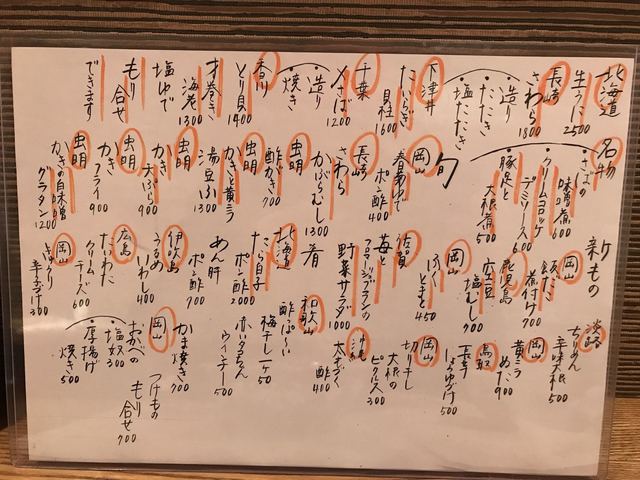 北海道
生うに 2500
長崎
さわら 1800
造り
たたき
塩たたき
下津井
たいらぎ
貝柱 1600
千葉
〆さば 1200
造り
焼き
香川
とり貝 1400
す巻き
海老 1300
塩ゆで
もり合せ
できます
名物
さばの
味噌煮 600
クリームコロッケ
デミソース 600
豚足と
大根煮 500
旬
岡山
春菊ゆで
ポン酢 400
長崎
さわら
かぶらむし 1300
虫明
酢かき 700
虫明
かきと黄ニラ
湯豆ふ 1300
虫明
かき
天ぷら 900
虫明
かき
フライ 900
虫明
かきの白味噌
グラタン 1200
新もの
岡山
飯だこ
煮付け 700
鹿児島
空豆
塩むし 700
岡山
ふぐ
とまと 450
佐賀
苺と
フロマージュブランの
野菜サラダ 1000
肴
北海道
たら白子
ポン酢 2000
あん肝
ポン酢 700
伊吹島
うるめ
いわし 400
広島
クリーム
チーズ 600
岡山
きゅうり
辛子づけ 300
淡路
ちりめん
辛味大根 500
岡山
黄ニラ
ぬた 900
鳥取
長芋
しょうゆづけ 500
岡山
切り干し
大根の
ピクルス 300
沖縄
太もずく
酢 400
和歌山
酢っぱ〜い
梅干し一ケ 50
赤いタコちゃん
ウインナー 500
かま焼き 700
岡山
おかべの
塩奴 300
厚揚げ
焼き 500
つけもの
もり合せ 700